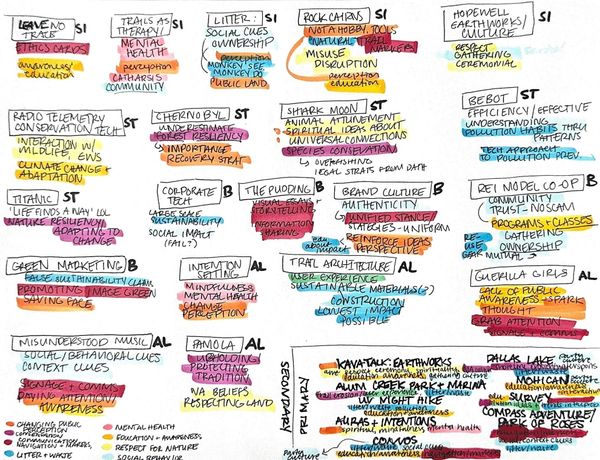 LEAVE NO TRAIL
SI
ETHICS CARDS
awareness/
education
TRAILS AS THERAPY/
SI
MENTAL
HEALTH
perception
CATHARSIS
COMMUNITY
LITTER:
SI
SOCIAL CUES
OWNERSHIP
perception
MONKEY SEE
MONKEY DO
PUBLIC LAND
ROCK CAIRNS
SI
NOT A HOBBY. TOOLS
NATURAL TRAIL
MARKERS
MISUSE
DISRUPTION
perception
education
HOPEWELL
EARTHWORKS/
CULTURE
SI
RESPECT
GATHERING
CEREMONIAL
RADIO TELEMETRY
CONSERVATION TECH
ST
INTERACTION W/
WILDLIFE, ENVS
CLIMATE CHANGE +
ADAPTATION
CHERNOBYL
ST
UNDERESTIMATE
FOREST RESILIENCY
IMPORTANCE
RECOVERY STRAT
SHARK MOON
ST
ANIMAL ATTUNEMENT
SPIRITUAL IDEAS ABOUT
UNIVERSAL CONNECTIONS
SPECIES CONSERVATION
↳ OVERFISHING
LEGAL STRATS FROM DATA
BEBOT
ST
EFFICIENCY/EFFECTIVE
UNDERSTANDING
POLLUTION HABITS THRU
PATTERNS
TECH APPROACH
TO POLLUTION PREV.
TITANIC
ST
"LIFE FINDS A WAY" LOL
NATURE RESILIENCY/
ADAPTING TO
CHANGE
CORPORATE
TECH
B
LARGE SCALE
SUSTAINABILITY
SOCIAL IMPACT
(FAIL?)
THE PUDDING
B
VISUAL ESSAYS +
STORYTELLING
INFORMATION
SHARING
BRAND CULTURE
B
AUTHENTICITY
UNIFIED STANCE/
STRATEGIES - UNIFORM
REINFORCE IDEAS
PERSPECTIVE
REI MODEL CO-OP
B
COMMUNITY
TRUST - NO SCAM
PROGRAMS + CLASSES
GATHERING
OWNERSHIP
RE-
USE
GEAR
MUTUAL
GREEN MARKETING
B
FALSE SUSTAINABILITY CLAIM
PROMOTING IMAGE GREEN
SAVING FACE
INTENTION
SETTING
AL
MINDFULNESS
MENTAL HEALTH
CHANGE
PERCEPTION
TRAIL ARCHITECTURE
AL
USER EXPERIENCE
SUSTAINABLE MATERIALS(?)
CONSTRUCTION
LOWEST IMPACT
POSSIBLE
GUERILLA GIRLS
AL
LACK OF PUBLIC
AWARENESS + SPARK
THOUGHT
GRAB ATTENTION
SIGNAGE + COMMS
MISUNDERSTOOD MUSIC
AL
SOCIAL/BEHAVIORAL CUES
CONTEXT CLUES
SIGNAGE + COMMS
PAYING ATTENTION/
AWARENESS
PAMOLA
AL
UPHOLDING/
PROTECTING
TRADITION
NA BELIEFS
RESPECTING LAND
SECONDARY/
PRIMARY
KAVATALK: EARTHWORKS
ALUM CREEK PARK + MARINA
NIGHT HIKE
AURAS + INTENTIONS
spiritual, mindfulness
CONVOS
DALLAS LAKE
MOHICAN
SURVEY
COMPASS ADVENTURE/
PARK OF ROSES
CHANGING PUBLIC
PERCEPTION
CONSERVATION
COMMUNICATION
LITTER + WASTE
MENTAL HEALTH
EDUCATION + AWARENESS
RESPECT FOR NATURE
SOCIAL BEHAVIOR